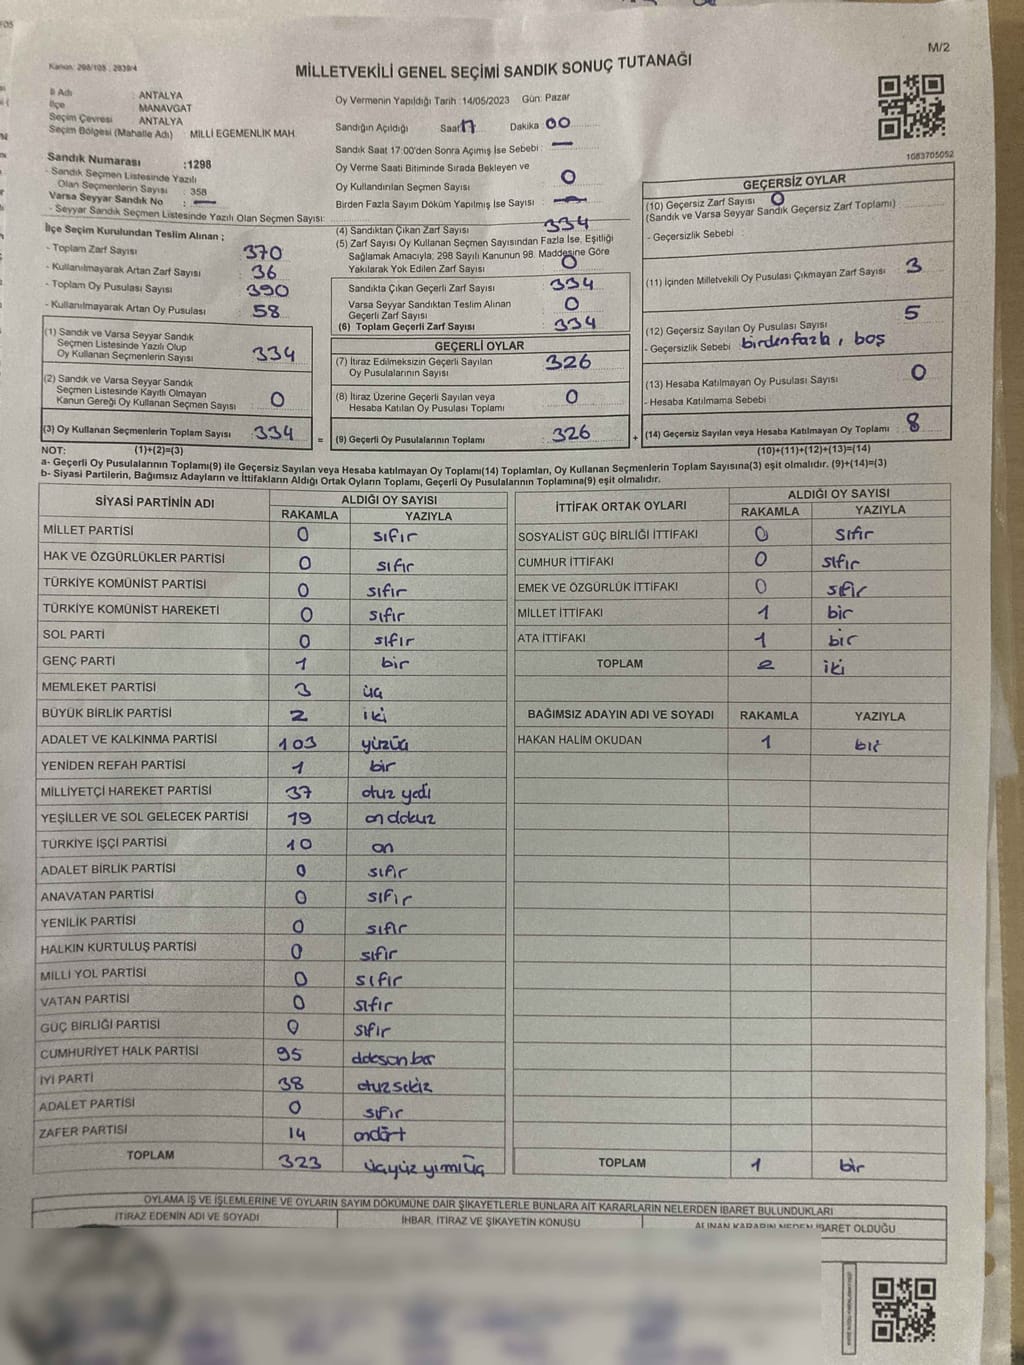 M/2
Kanun: 298/105 , 2839/4
MİLLETVEKİLİ GENEL SEÇİMİ SANDIK SONUÇ TUTANAĞI
İl Adı : ANTALYA
İlçe : MANAVGAT
Seçim Çevresi : ANTALYA
Seçim Bölgesi (Mahalle Adı) : MİLLİ EGEMENLİK MAH
Oy Vermenin Yapıldığı Tarih :14/05/2023 Gün: Pazar
Sandığın Açıldığı Saat 17 Dakika 00
Sandık Saat 17:00'den Sonra Açımış İse Sebebi : —
Oy Verme Saati Bitiminde Sırada Bekleyen ve
Oy Kullandırılan Seçmen Sayısı 0
Birden Fazla Sayım Döküm Yapılmış İse Sayısı : —
Sandık Numarası :1298
- Sandık Seçmen Listesinde Yazılı
Olan Seçmenlerin Sayısı : 358
Varsa Seyyar Sandık No : —
- Seyyar Sandık Seçmen Listesinde Yazılı Olan Seçmen Sayısı:
İlçe Seçim Kurulundan Teslim Alınan ;
- Toplam Zarf Sayısı : 370
- Kullanılmayarak Artan Zarf Sayısı : 36
- Toplam Oy Pusulası Sayısı : 390
- Kullanılmayarak Artan Oy Pusulası : 58
(1) Sandık ve Varsa Seyyar Sandık
Seçmen Listesinde Yazılı Olup
Oy Kullanan Seçmenlerin Sayısı : 334
(2) Sandık ve Varsa Seyyar Sandık
Seçmen Listesinde Kayıtlı Olmayan
Kanun Gereği Oy Kullanan Seçmen Sayısı : 0
(3) Oy Kullanan Seçmenlerin Toplam Sayısı : 334
(4) Sandıktan Çıkan Zarf Sayısı : 334
(5) Zarf Sayısı Oy Kullanan Seçmen Sayısından Fazla İse, Eşitliği
Sağlamak Amacıyla; 298 Sayılı Kanunun 98. Maddesine Göre
Yakılarak Yok Edilen Zarf Sayısı : 0
Sandıkta Çıkan Geçerli Zarf Sayısı : 334
Varsa Seyyar Sandıktan Teslim Alınan
Geçerli Zarf Sayısı : 0
(6) Toplam Geçerli Zarf Sayısı : 334
GEÇERLİ OYLAR
(7) İtiraz Edilmeksizin Geçerli Sayılan
Oy Pusulalarının Sayısı : 326
(8) İtiraz Üzerine Geçerli Sayılan veya
Hesaba Katılan Oy Pusulası Toplamı : 0
= (9) Geçerli Oy Pusulalarının Toplamı : 326
1083705052
GEÇERSİZ OYLAR
(10) Geçersiz Zarf Sayısı : 0
(Sandık ve Varsa Seyyar Sandık Geçersiz Zarf Toplamı)
- Geçersizlik Sebebi :
(11) İçinden Milletvekili Oy Pusulası Çıkmayan Zarf Sayısı : 3
(12) Geçersiz Sayılan Oy Pusulası Sayısı : 5
- Geçersizlik Sebebi : birden fazla, boş
(13) Hesaba Katılmayan Oy Pusulası Sayısı : 0
- Hesaba Katılmama Sebebi :
+ (14) Geçersiz Sayılan veya Hesaba Katılmayan Oy Toplamı : 8
NOT: (1)+(2)=(3) (10)+(11)+(12)+(13)=(14)
a- Geçerli Oy Pusulalarının Toplamı(9) ile Geçersiz Sayılan veya Hesaba katılmayan Oy Toplamı(14) Toplamları, Oy Kullanan Seçmenlerin Toplam Sayısına(3) eşit olmalıdır. (9)+(14)=(3)
b- Siyasi Partilerin, Bağımsız Adayların ve İttifakların Aldığı Ortak Oyların Toplamı, Geçerli Oy Pusulalarının Toplamına(9) eşit olmalıdır.
SİYASİ PARTİNİN ADI ALDIĞI OY SAYISI
RAKAMLA YAZIYLA
MİLLET PARTİSİ 0 sıfır
HAK VE ÖZGÜRLÜKLER PARTİSİ 0 sıfır
TÜRKİYE KOMÜNİST PARTİSİ 0 sıfır
TÜRKİYE KOMÜNİST HAREKETİ 0 sıfır
SOL PARTİ 0 sıfır
GENÇ PARTİ 1 bir
MEMLEKET PARTİSİ 3 üç
BÜYÜK BİRLİK PARTİSİ 2 iki
ADALET VE KALKINMA PARTİSİ 103 yüzüç
YENİDEN REFAH PARTİSİ 1 bir
MİLLİYETÇİ HAREKET PARTİSİ 37 otuz yedi
YEŞİLLER VE SOL GELECEK PARTİSİ 19 on dokuz
TÜRKİYE İŞÇİ PARTİSİ 10 on
ADALET BİRLİK PARTİSİ 0 sıfır
ANAVATAN PARTİSİ 0 sıfır
YENİLİK PARTİSİ 0 sıfır
HALKIN KURTULUŞ PARTİSİ 0 sıfır
MİLLİ YOL PARTİSİ 0 sıfır
VATAN PARTİSİ 0 sıfır
GÜÇ BİRLİĞİ PARTİSİ 0 sıfır
CUMHURİYET HALK PARTİSİ 95
İYİ PARTİ 38 otuz sekiz
ADALET PARTİSİ 0 sıfır
ZAFER PARTİSİ 14 ondört
TOPLAM 323 üçyüz yirmiüç
İTTİFAK ORTAK OYLARI ALDIĞI OY SAYISI
RAKAMLA YAZIYLA
SOSYALİST GÜÇ BİRLİĞİ İTTİFAKI 0 sıfır
CUMHUR İTTİFAKI 0 sıfır
EMEK VE ÖZGÜRLÜK İTTİFAKI 0 sıfır
MİLLET İTTİFAKI 1 bir
ATA İTTİFAKI 1 bir
TOPLAM 2 iki
BAĞIMSIZ ADAYIN ADI VE SOYADI RAKAMLA YAZIYLA
HAKAN HALİM OKUDAN 1 bir
TOPLAM 1 bir
OYLAMA İŞ VE İŞLEMLERİNE VE OYLARIN SAYIM DÖKÜMÜNE DAİR ŞİKAYETLERLE BUNLARA AİT KARARLARIN NELERDEN İBARET BULUNDUKLARI
İTİRAZ EDENİN ADI VE SOYADI İHBAR, İTİRAZ VE ŞİKAYETİN KONUSU ALINAN KARARIN NEDEN İBARET OLDUĞU